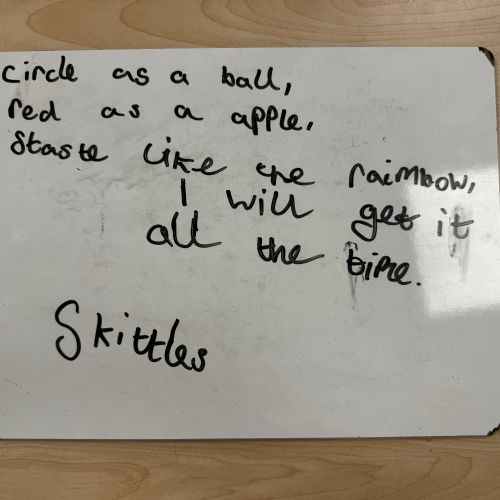 circle as a ball,
red as a apple.
Staste like the raimbow,
I will get it
all the time.
Skittles